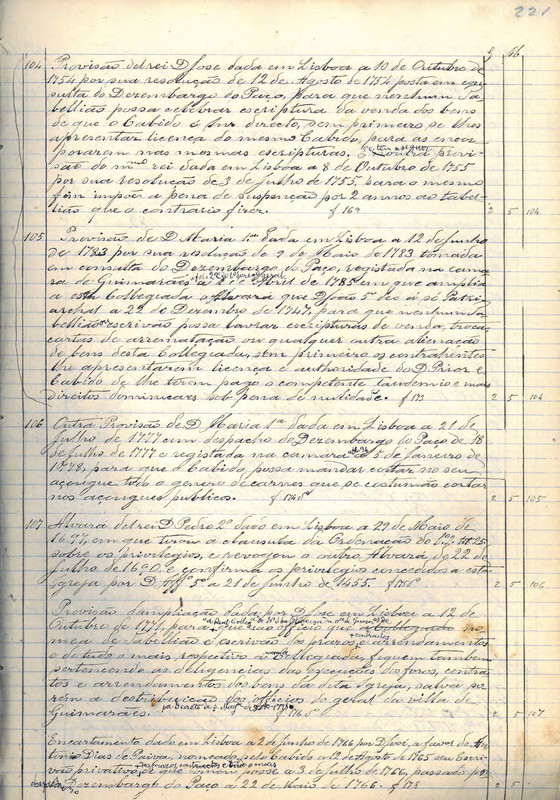 221
104 Provisão del rei D José dada em Lisboa a 10 de Outubro de
1754 por sua resolução de 12 de Agosto de 1754 posta em con
sulta do Dezembargo do Paço, para que nenhum Ta
bellião possa celebrar escriptura da venda dos bens
de que o Cabido é Snr directo, sem primeiro se lhes
apresentar licença do mesmo Cabido, para as encor
porarem nas mesmas escripturas. outra provi
são do mmo rei dada em Lisboa a 8 de Outubro de 1755
por sua resolução de 3 de Julho de 1755, para o mesmo
fim impõe a pena de suspenção por 2 annos ao tabel
lião que o contrario fizer. f 169 2 5 104
105 Provisão de D Maria 1ª dada em Lisboa a 12 de Junho
de 1783 por sua resolução de 9 de Maio de 1783 tomada
em consulta do Dezembargo do Paço, registada na cama
ra de Guimarães de Abril de 1785 em que amplia
a esta Collegiada o Alvará que D João 5º deo á Sé Patri
archal a 22 de Dezembro de 1747, para que nenhum Ta
bellião ou escrivão possa lavrar escripturas de venda, troca
cartas de arrematação ou qualquer outra alienação
de bens desta Collegiada, sem primeiro os contrahentes
lhe apresentarem licença e authoridade do D Prior e
Cabido de lhe terem pago o competente laudemio e mais
direitos dominicaes sob pena de nullidade. f 173 2 5 104
106 Outra Provisão de D Maria 1ª dada em Lisboa a 21 de
Julho de 1777 com despacho do Dezembargo do Paço de 18
de Julho de 1777 e registada na camara a 5 de Janeiro de
1778, para que o Cabido possa mandar cortar no seu
açougue todo o genero de carnes que se costumão cortar
nos açougues publicos. f 174 2 5 105
107 Alvará del rei D Pedro 2º dado em Lisboa a 29 de Maio de
1697, em que tirou a clausula da Ordenação do
sobre os privilegios, e revogou o outro Alvará, de 22 de
Julho de 1690, e confirma os privilegios concedidos a esta
Igreja por D Affº 5º a 21 de Junho de 1455. f 175 2 5 106
Provisão d'ampliação dada por D José em Lisboa a 12 de
Outubro de 177 para que ao officio que no
mea de tabellião e escrivão dos prazos e arrendamentos
contractos
e de tudo o mais respectivo á Collegiada, fiquem tambem
pertencendo as deligencias das execuções de foros, contra
tos e arrendamentos dos bens da dita Igreja, salva po
rém a destribuição dos officios do geral da villa de
Guimarães. f 176 2 5 107
Encartamento dado em Lisboa a 2 de Junho de 1766 por D José, a favor de An
tonio Dias de Paiva, nomeado pelo Cabido a 12 de Agosto de 1765 seu Escri
vão privativo, de que tomou posse a 3 de Julho de 1766, passado pe
lo Dezembargo do Paço a 22 de Maio de 1766. f 178